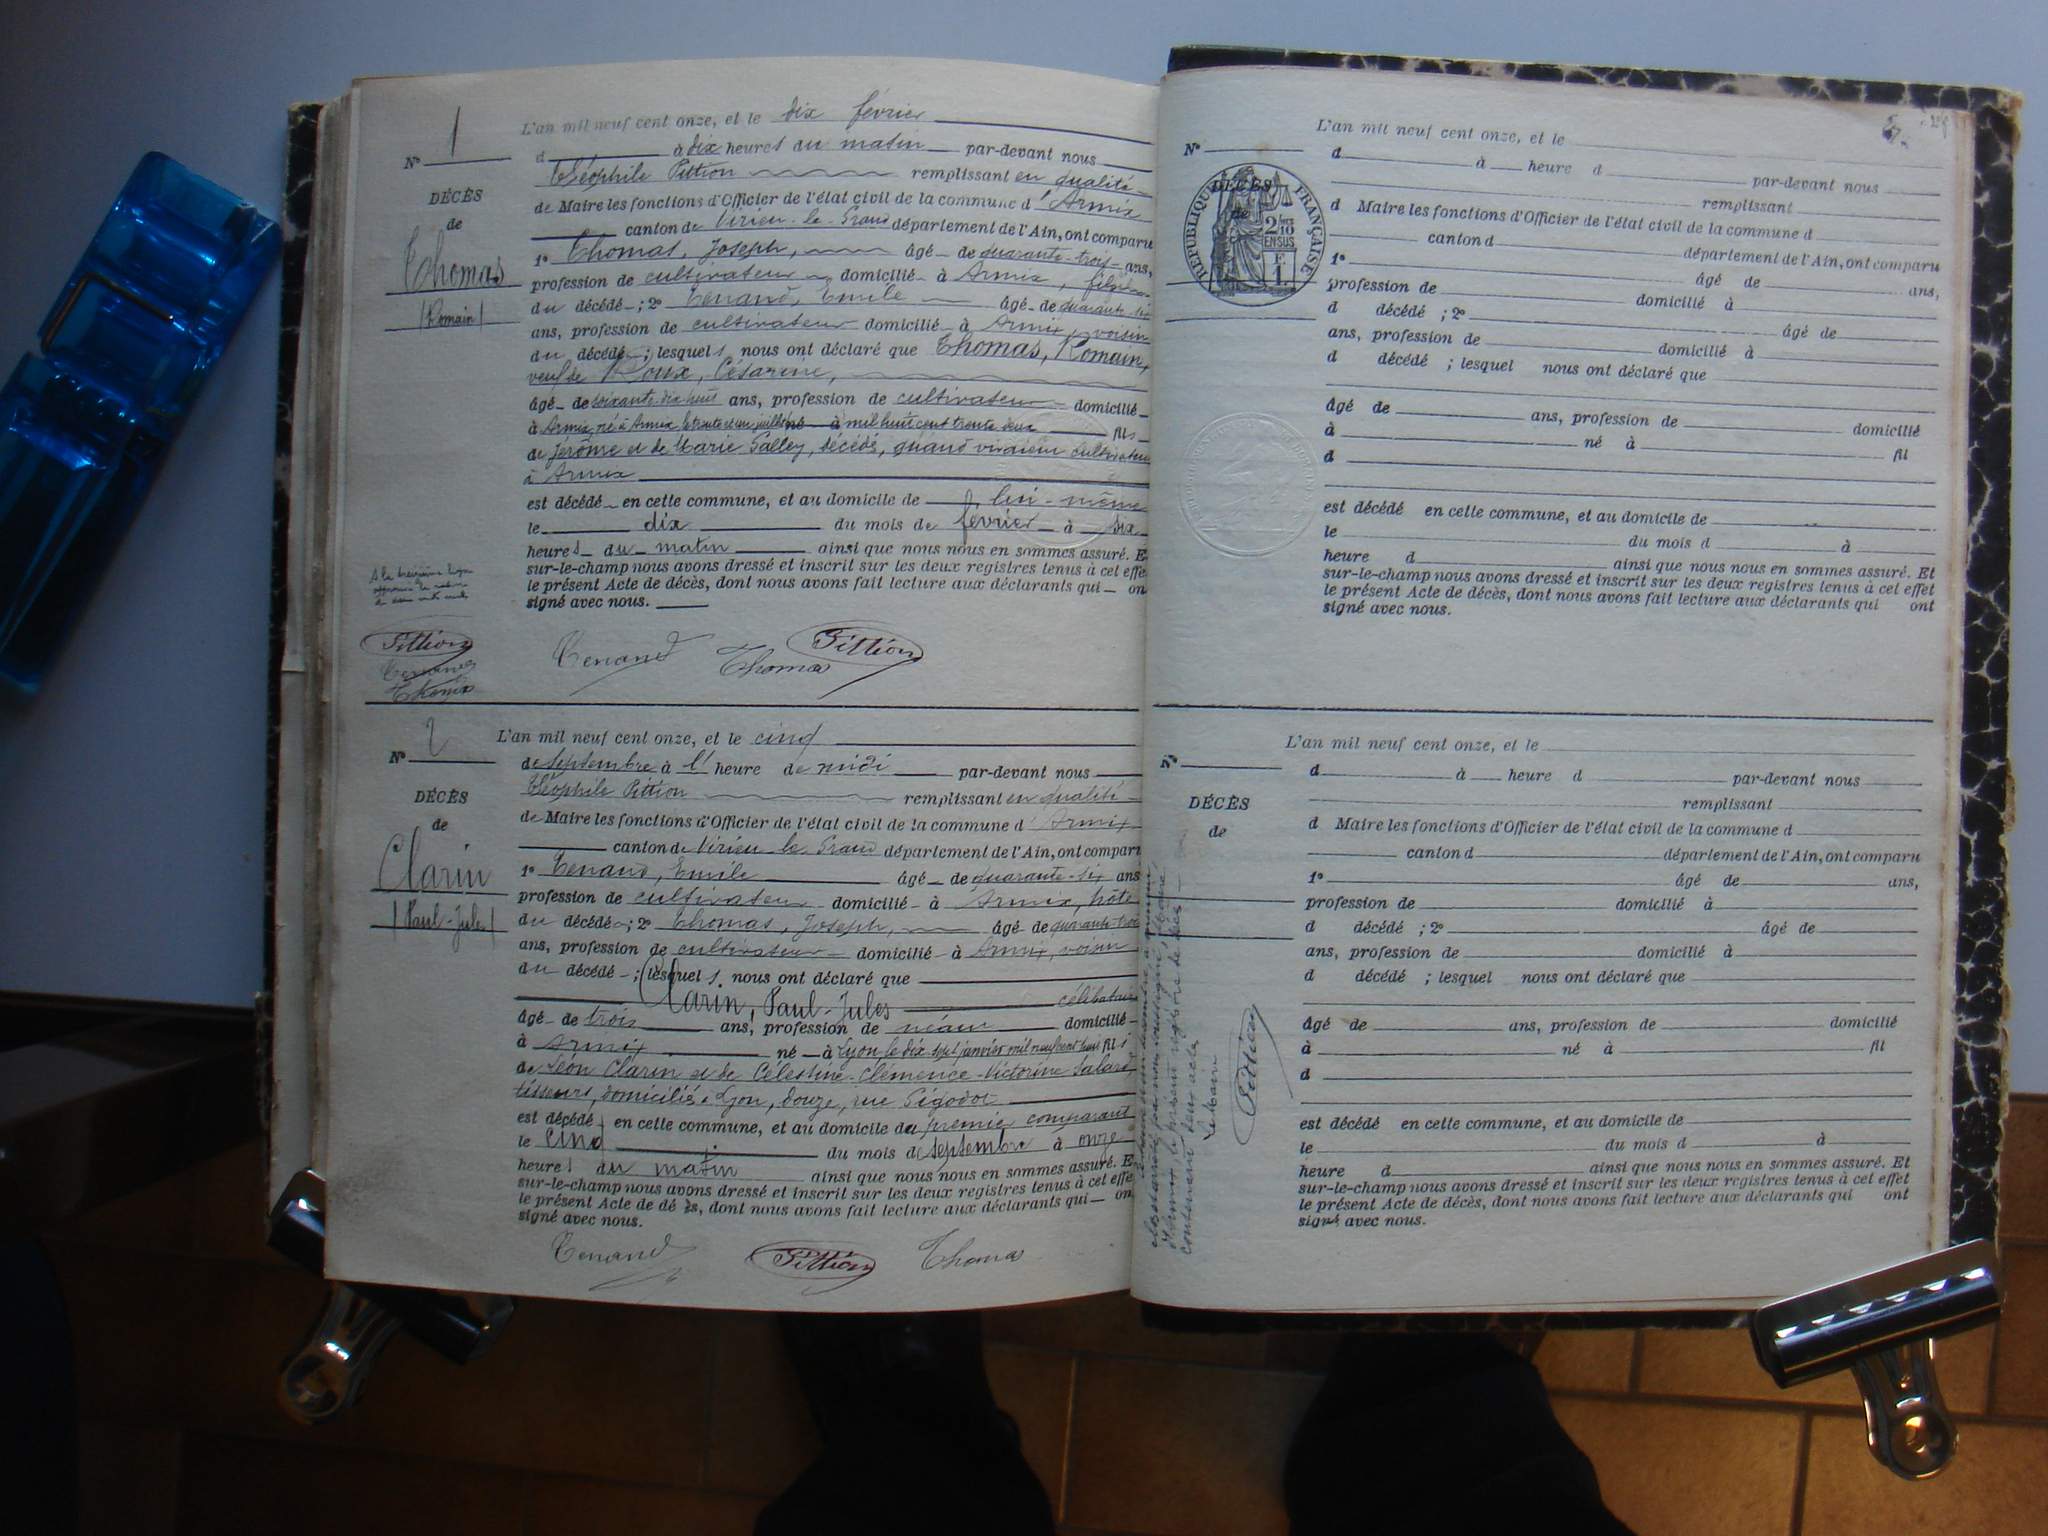 1
L'an mil neuf cent onze, et le dix février
N° d à dix heures du matin par-devant nous
Théophile Pittion remplissant en qualité
DÉCÈS
de Maire les fonctions d'Officier de l'état civil de la commune d'Armix
de
canton de Virieu-le-Grand département de l'Ain, ont comparu
Thomas
1° Thomas, Joseph, âgé de quarante-trois ans,
profession de cultivateur domicilié à Armix, fils
(Romain)
du décédé ; 2° Tenand, Emile âgé de quarante-six
ans, profession de cultivateur domicilié à Armix, voisin
du décédé ; lesquels nous ont déclaré que Thomas, Romain,
veuf de Roux, Césarine,
âgé de soixante-dix-huit ans, profession de cultivateur domicilié
à Armix, né à Armix le trente et un juillet né à mil huit cent trente deux fils
de Jérôme et de Marie Salley, décédés, quand vivaient cultivateurs
à Armix
est décédé en cette commune, et au domicile de lui-même
le dix du mois de février à six
heures du matin ainsi que nous nous en sommes assuré. E
sur-le-champ nous avons dressé et inscrit sur les deux registres tenus à cet effe
le présent Acte de décès, dont nous avons fait lecture aux déclarants qui on
signé avec nous.
Pittion
Tenand
Thomas
Tenand Thomas Pittion
2
L'an mil neuf cent onze, et le cinq
N° de septembre à l'heure de midi par-devant nous
Théophile Pittion remplissant en qualité
DÉCÈS
de Maire les fonctions d'Officier de l'état civil de la commune d'Armix
de
canton de Virieu-le-Grand département de l'Ain, ont compar
Clarin
1° Tenand, Emile âgé de quarante-six ans
profession de cultivateur domicilié à Armix, hôte
(Paul-Jules)
du décédé ; 2° Thomas, Joseph, âgé de quarante-trois
ans, profession de cultivateur domicilié à Armix, voisin
du décédé ; lesquels nous ont déclaré que
Clarin, Paul-Jules célibataire
âgé de trois ans, profession de néant domicilié
à Armix né à Lyon, le dix sept janvier mil neuf cent huit fils
de Léon Clarin et de Célestine-Clémence-Victorine
tisseurs, domiciliés à Lyon, douze, rue
est décédé en cette commune, et au domicile du premier comparant
le cinq du mois de septembre à onze
heures du matin ainsi que nous nous en sommes assuré. E
sur-le-champ nous avons dressé et inscrit sur les deux registres tenus à cet effe
le présent Acte de décès, dont nous avons fait lecture aux déclarants qui on
signé avec nous.
Tenand Pittion Thomas
L'an mil neuf cent onze, et le
N° d à heure d par-devant nous
remplissant
DÉCÈS
de
RÉPUBLIQUE FRANÇAISE
2/10
EN SUS
1 F.
d Maire les fonctions d'Officier de l'état civil de la commune d
canton d département de l'Ain, ont comparu
1° âgé de ans,
profession de domicilié à
d décédé ; 2° âgé de
ans, profession de domicilié à
d décédé ; lesquel nous ont déclaré que
âgé de ans, profession de domicilié
à né à fil
d
est décédé en cette commune, et au domicile de
le du mois d à
heure d ainsi que nous nous en sommes assuré. Et
sur-le-champ nous avons dressé et inscrit sur les deux registres tenus à cet effet
le présent Acte de décès, dont nous avons fait lecture aux déclarants qui ont
signé avec nous.
L'an mil neuf cent onze, et le
N° d à heure d par-devant nous
remplissant
DÉCÈS
de
d Maire les fonctions d'Officier de l'état civil de la commune d
canton d département de l'Ain, ont comparu
1° âgé de ans,
profession de domicilié à
d décédé ; 2° âgé de
ans, profession de domicilié à
d décédé ; lesquel nous ont déclaré que
âgé de ans, profession de domicilié
à né à fil
d
est décédé en cette commune, et au domicile de
le du mois d à
heure d ainsi que nous nous en sommes assuré. Et
sur-le-champ nous avons dressé et inscrit sur les deux registres tenus à cet effet
le présent Acte de décès, dont nous avons fait lecture aux déclarants qui ont
signé avec nous.
le présent registre de décès
contenant deux actes
Le Maire
Pittion